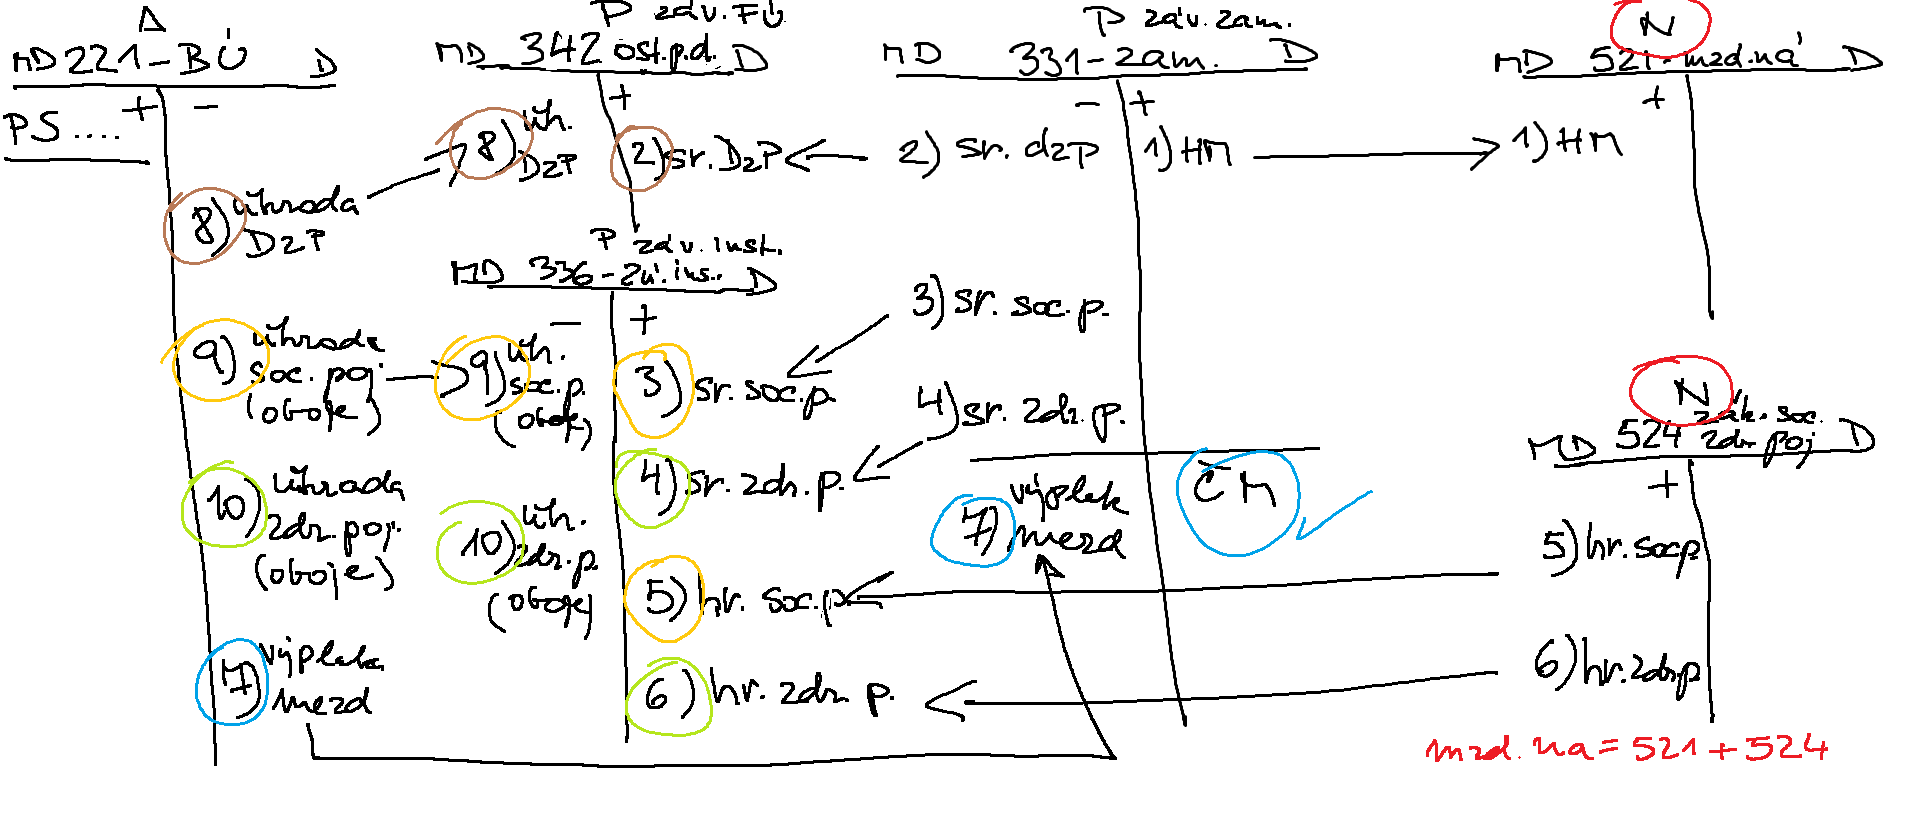 A
MD 221-BÚ D
+ -
PS ....
8) úhrada
DzP
9) úhrada
soc. poj.
(oboje)
10) úhrada
zdr. poj.
(oboje)
7) výplata
mezd
P záv. FÚ
MD 342 ost.p.d. D
+
8) úh.
DzP
2) sr. DzP
P záv. inst.
MD 336-zú. ins. D
- +
9) úh.
soc. p.
(oboje)
3) sr. soc. p.
4) sr. zdr. p.
10) úh.
zdr. p.
(oboje)
5) hr. soc. p.
6) hr. zdr. p.
P záv. zam.
MD 331-zam. D
- +
2) sr. dzp
1) HM
3) sr. soc. p.
4) sr. zdr. p.
7) výplata
mezd
ČM
N
MD 521-mzd.ná D
+
1) HM
N
zák. soc.
MD 524 zdr poj D
+
5) hr. socp
6) hr. zdrp
mzd. na = 521 + 524